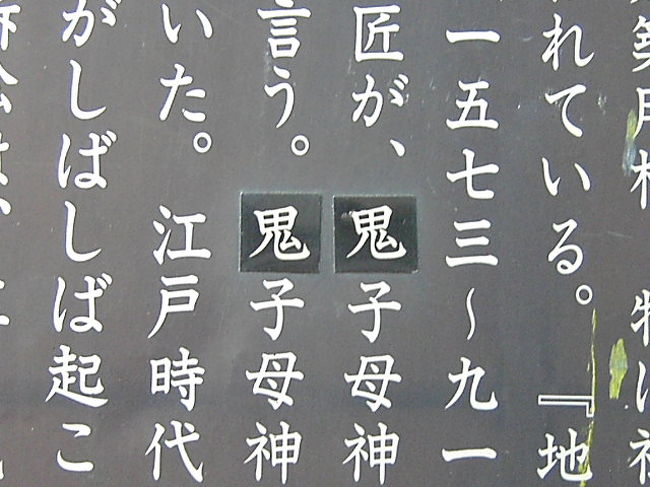 れている。『地
一五七三〜九一
匠が、鬼子母神
言う。鬼子母神
いた。江戸時代
がしばしば起こ